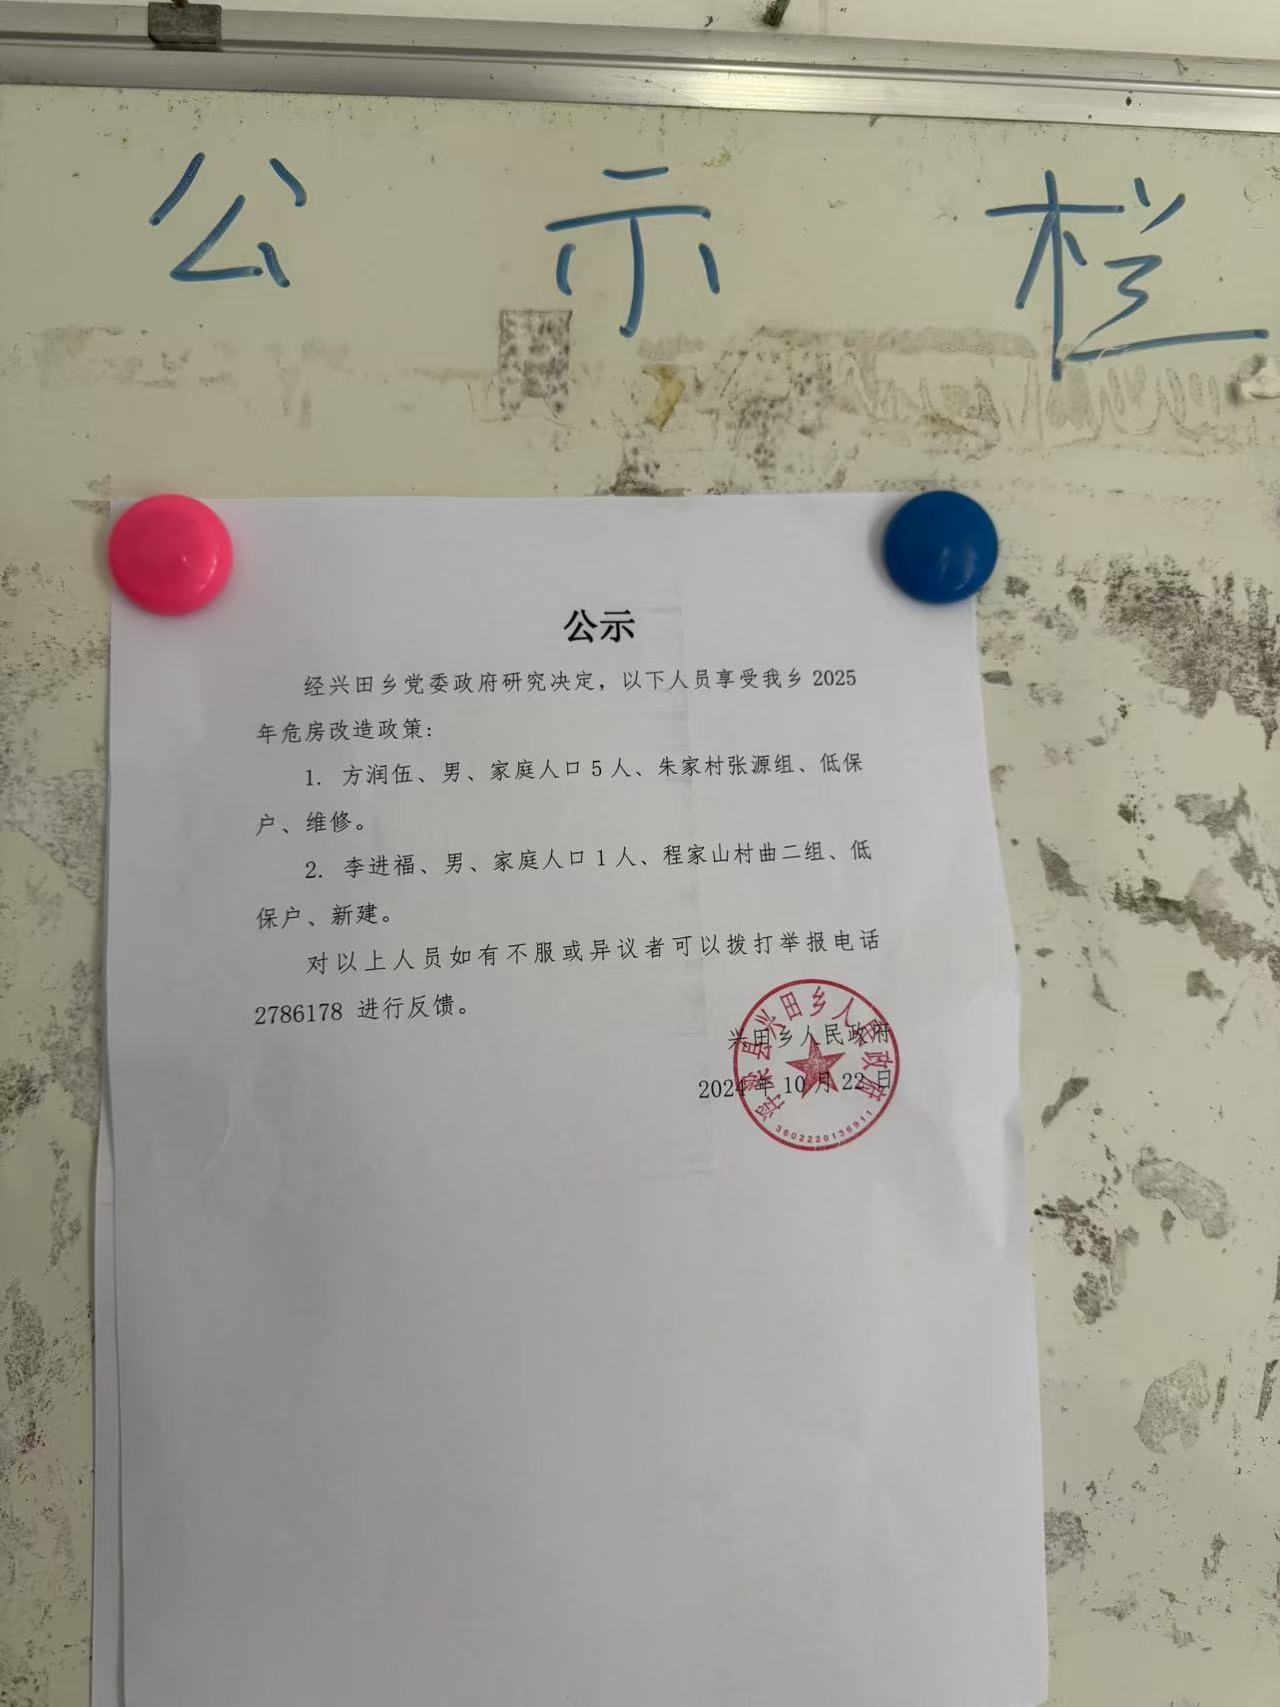 公示栏
公示
经兴田乡党委政府研究决定，以下人员享受我乡 2025
年危房改造政策：
1. 方润伍、男、家庭人口 5 人、朱家村张源组、低保
户、维修。
2. 李进福、男、家庭人口 1 人、程家山村曲二组、低
保户、新建。
对以上人员如有不服或异议者可以拨打举报电话
2786178 进行反馈。
兴田乡人民政府
2024 年 10 月 22 日
浮梁县兴田乡人民政府
3602220136911